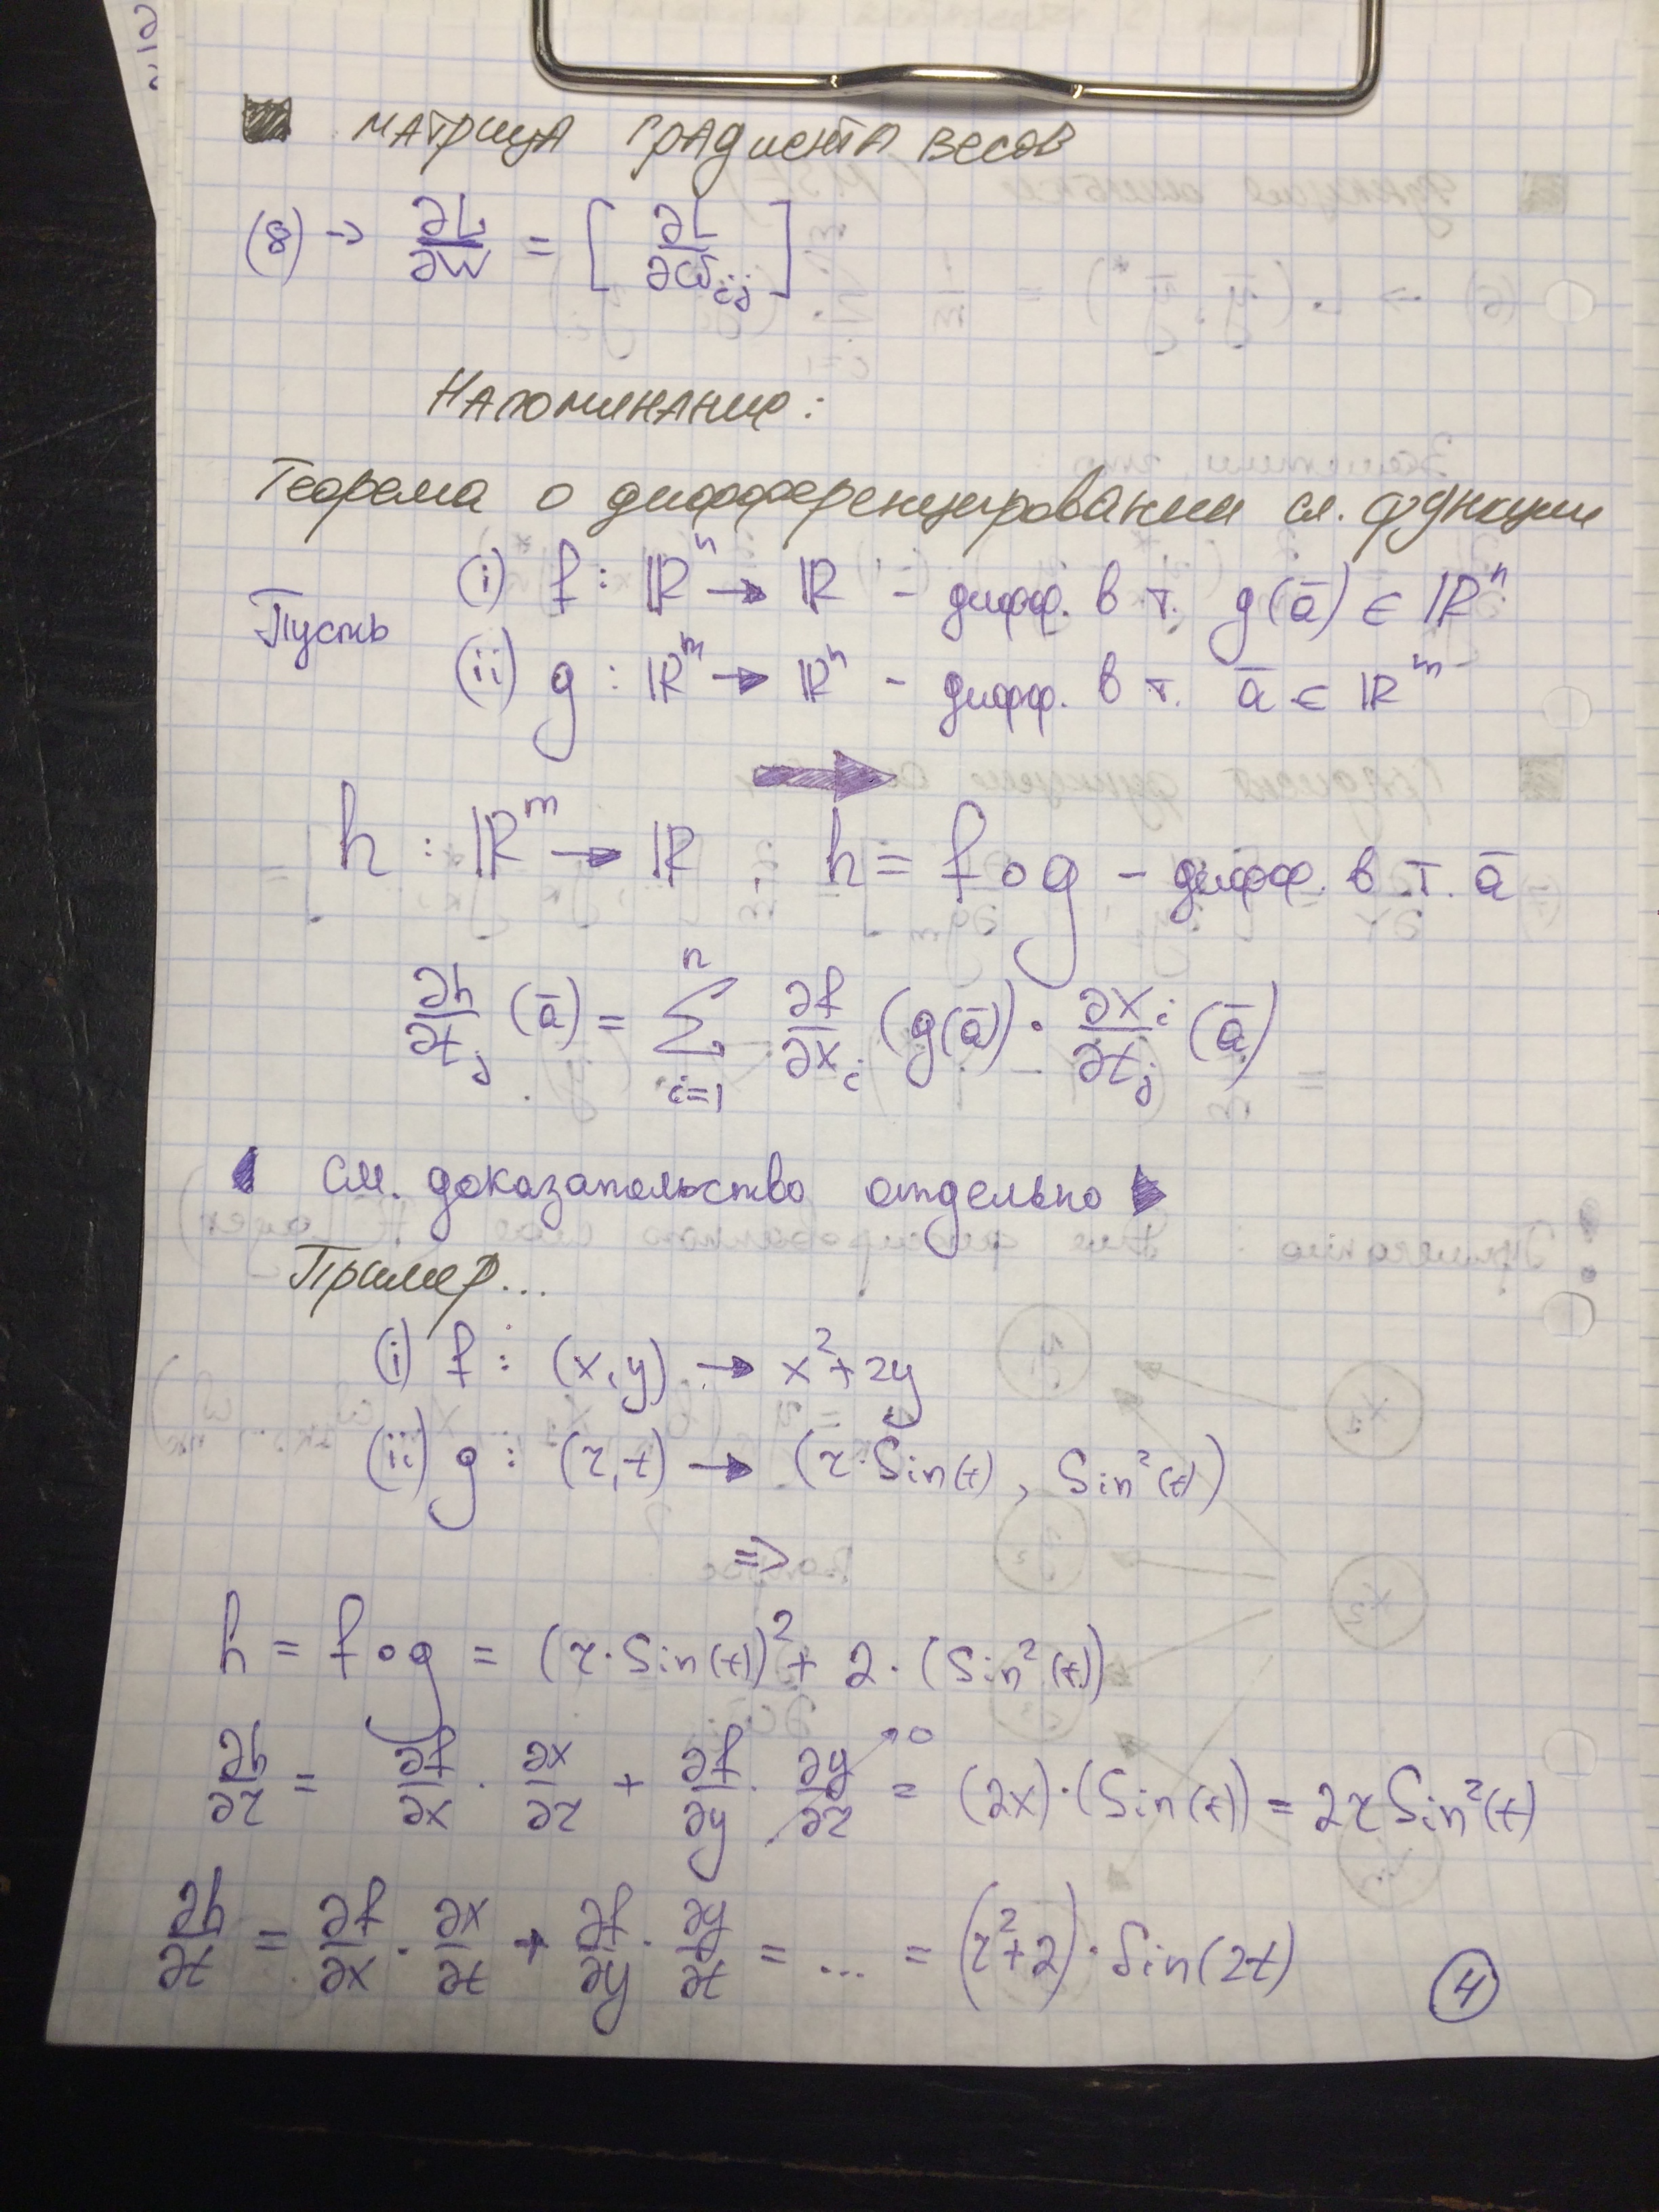 Матрица градиента весов
(8) → ∂L/∂W = [ ∂L/∂ω_ij ]
Напоминание:
Теорема о дифференцировании сл. функции
Пусть (i) f : ℝ^n → ℝ – дифф. в т. g(ā) ∈ ℝ^n
(ii) g : ℝ^m → ℝ^n – дифф. в т. ā ∈ ℝ^m
h : ℝ^m → ℝ , h = f ∘ g – дифф. в т. ā
∂h/∂t_j (ā) = ∑_{i=1}^{n} ∂f/∂x_i (g(ā)) · ∂x_i/∂t_j (ā)
См. доказательство отдельно
Пример...
(i) f : (x, y) → x² + 2y
(ii) g : (r, t) → (r · Sin(t) , Sin²(t))
=>
h = f ∘ g = (r · Sin(t))² + 2 · (Sin²(t))
∂h/∂r = ∂f/∂x · ∂x/∂r + ∂f/∂y · ∂y/∂r → 0 = (2x) · (Sin(t)) = 2r Sin²(t)
∂h/∂t = ∂f/∂x · ∂x/∂t + ∂f/∂y · ∂y/∂t = ... = (r² + 2) · Sin(2t)
4